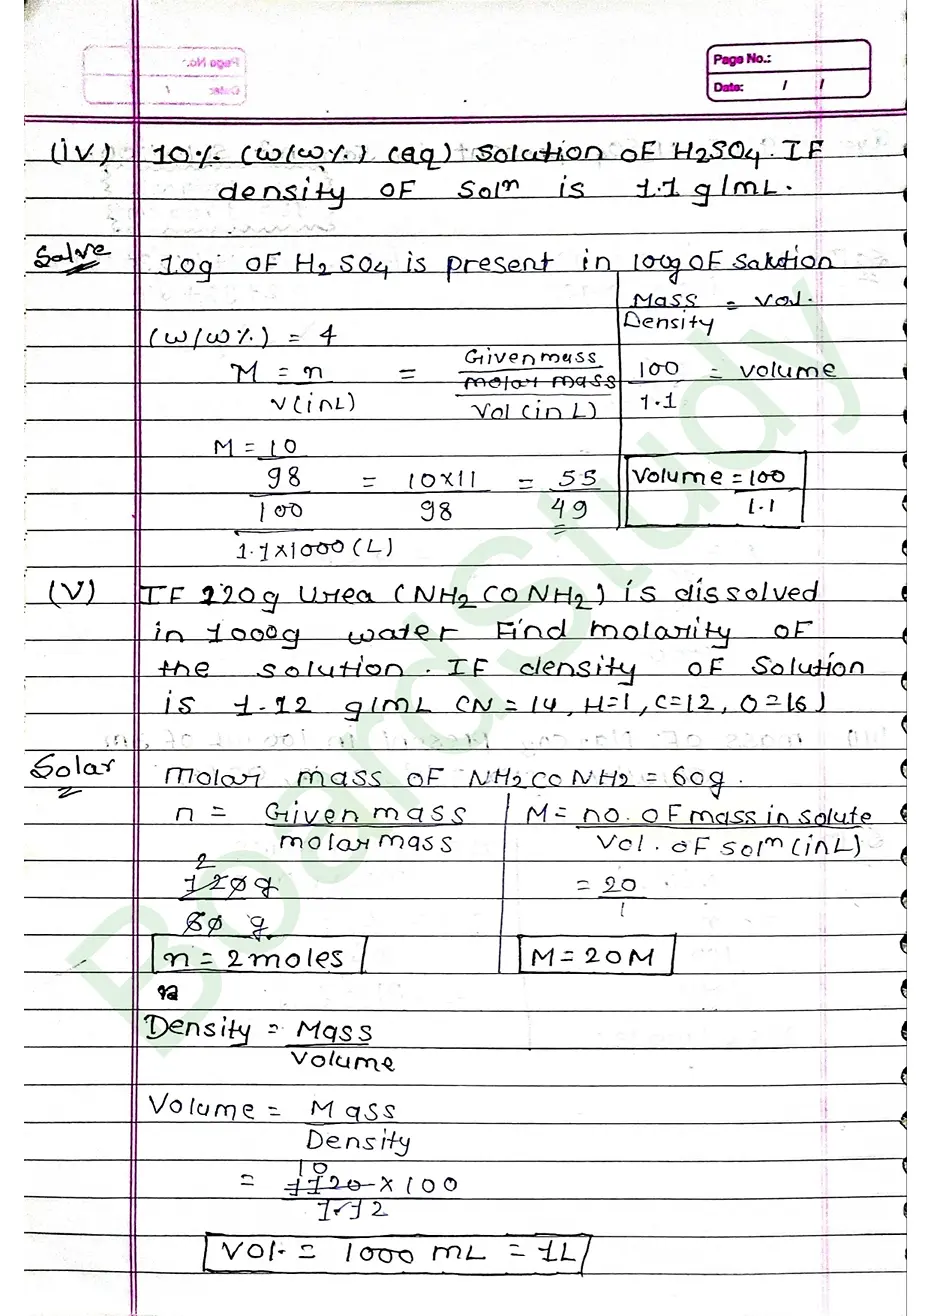 Page No.:
Date: / /
(iv) 10% (w/w%) (aq) Solution OF H2SO4. IF
density OF Solⁿ is 1.1 g/mL.
Solve
10g OF H2SO4 is present in 100g OF Solution
Mass/Density = Vol.
(w/w%) = 4
M = n/V(inL) = Given mass/molar mass/Vol (in L)
100/1.1 = volume
M = 10/98/100/1.1×1000 (L) = 10×11/98 = 55/49
Volume = 100/1.1
(V) IF 120g Urea (NH2CONH2) is dissolved
in 1000g water Find molarity OF
the solution. IF density OF Solution
is 1.12 g/mL (N=14, H=1, C=12, O=16)
Solar
Molar mass OF NH2CONH2 = 60g.
n = Given mass/molar mass
M = no. OF mass in solute/Vol. OF solⁿ (inL)
2
120g/60 g
= 20/1
n = 2 moles
M = 20M
Density = Mass/Volume
Volume = Mass/Density
10
= 1120 × 100/1.12
Vol. = 1000 mL = 1L
BoardStudy